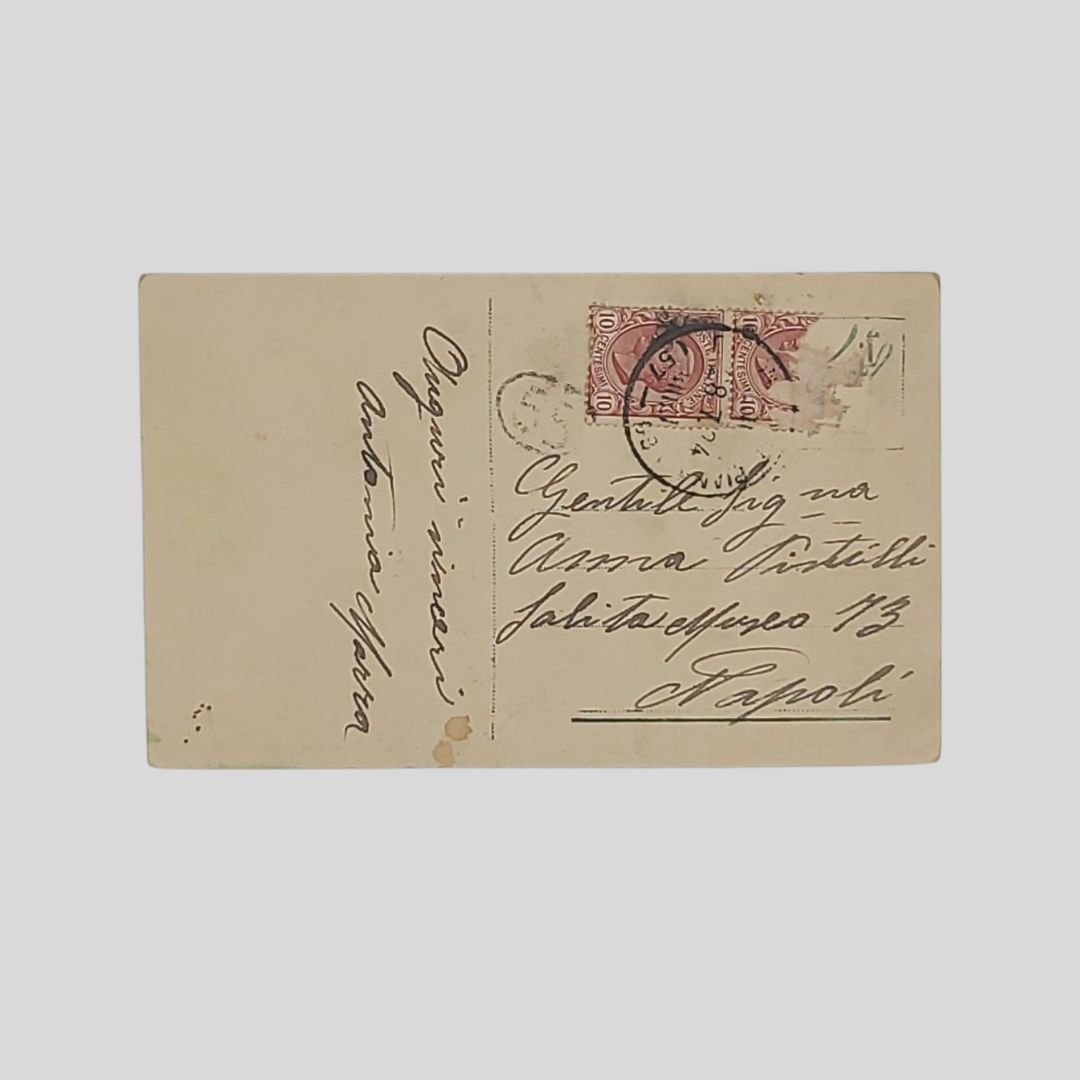 Auguri sinceri
Antonia Marra
10 CENTESIMI 10
10 CENTESIMI 10
Gentill Sig na
Anna Pistilli
Salita Museo 73
Napoli